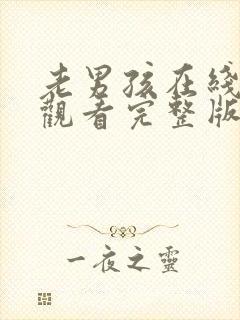 老男孩在綫
觀看完整版
一夜之靈